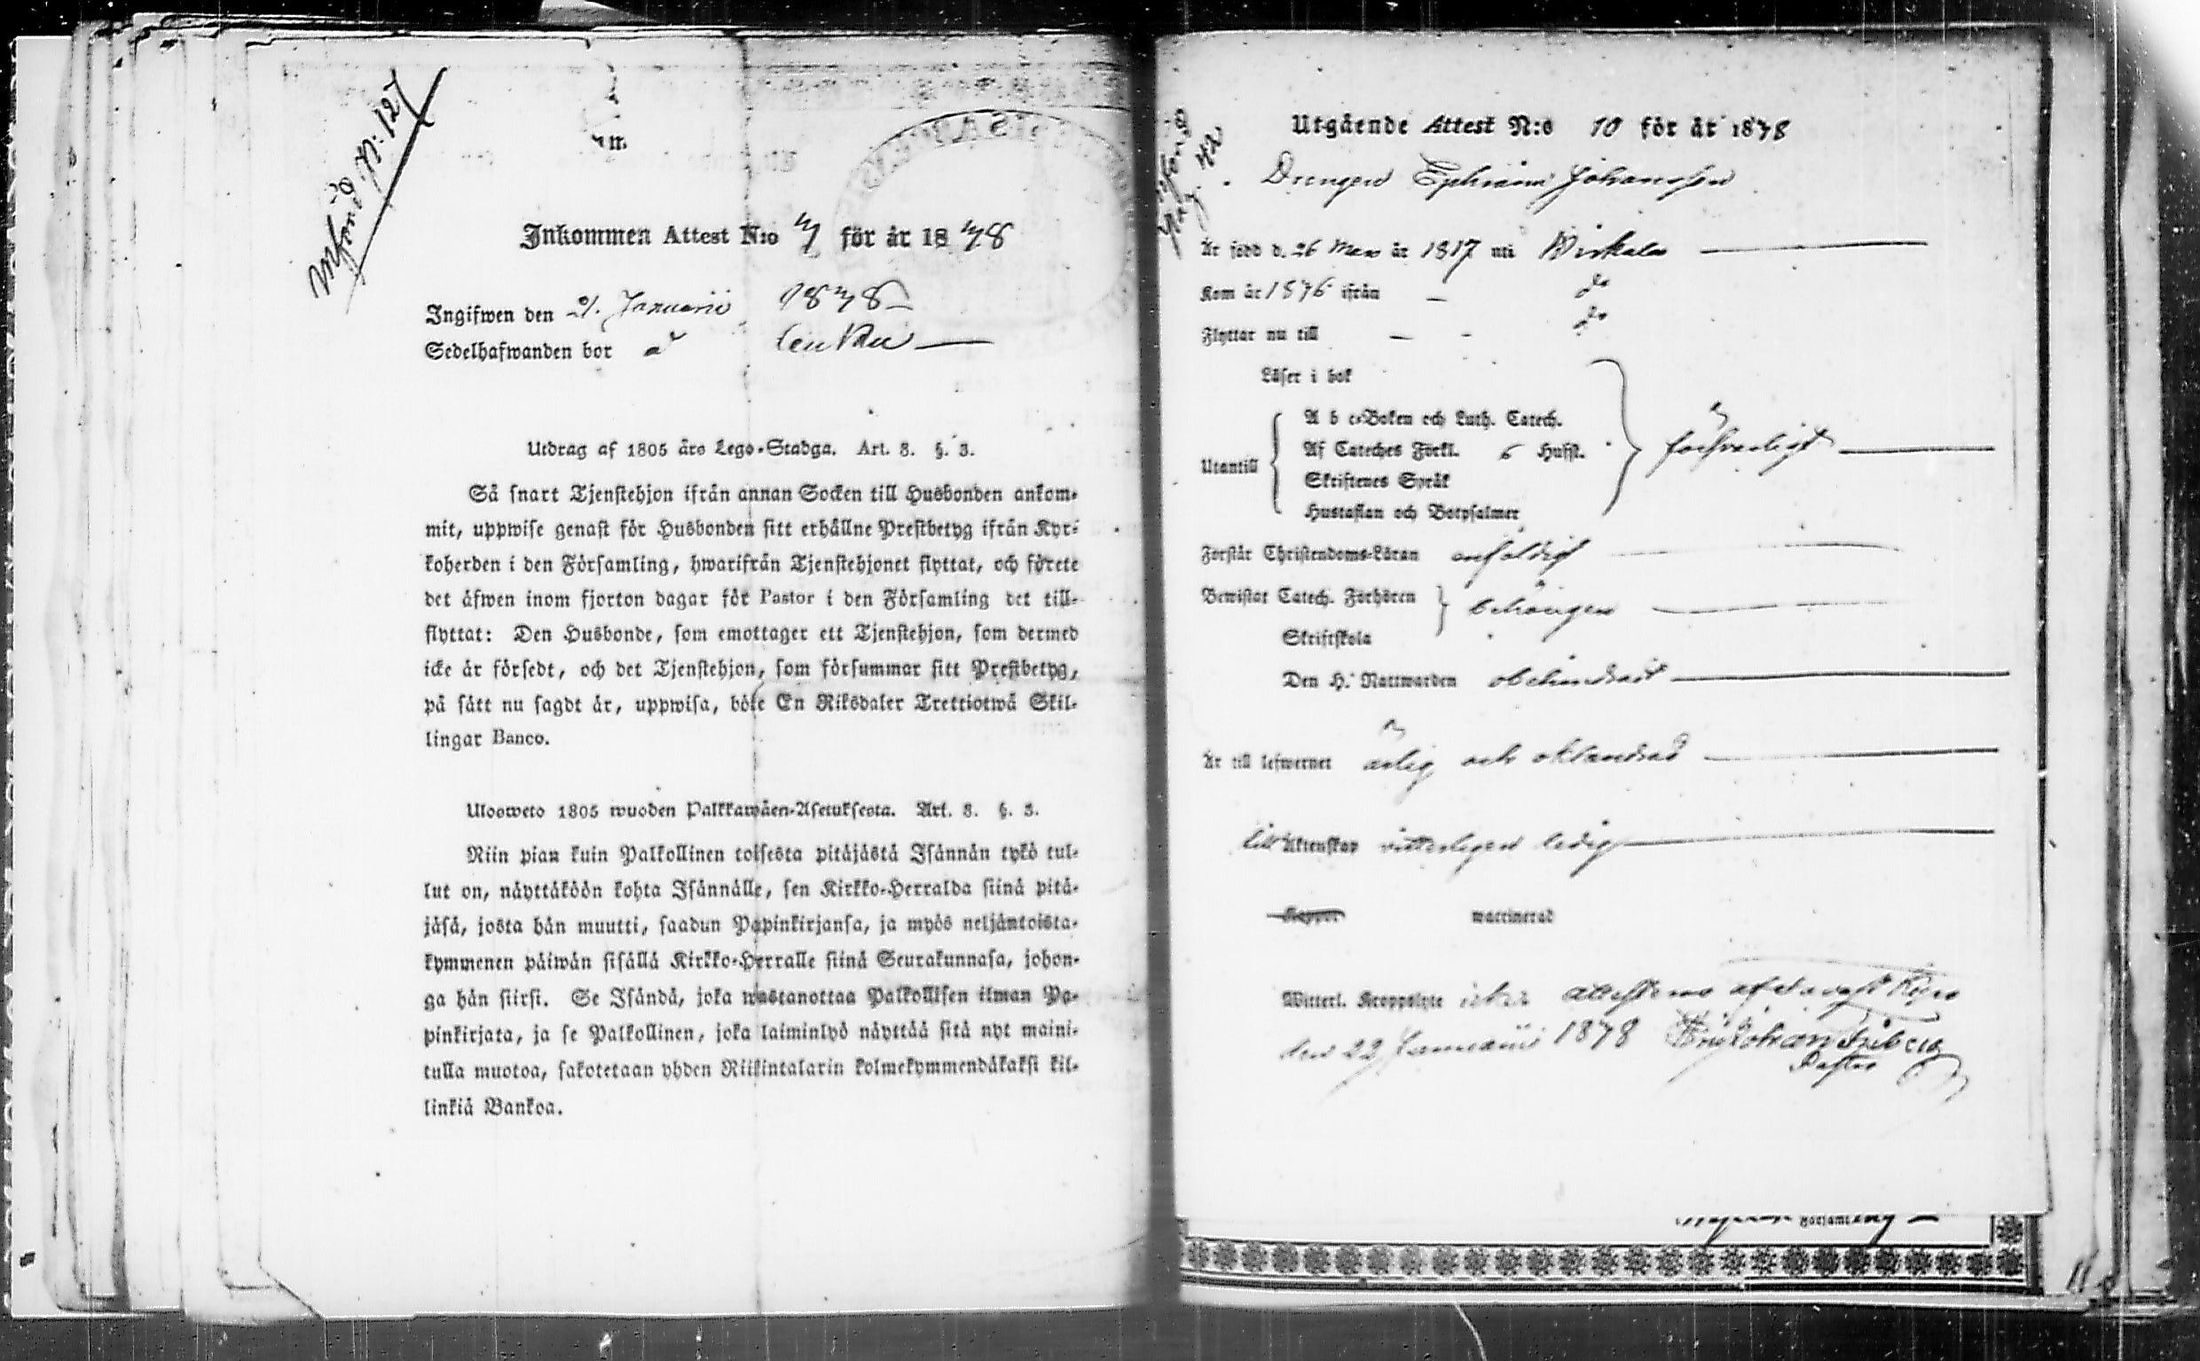 Införd p. 127
Inkommen Attest N:o 7 för år 1878
Ingifwen den 21. Januarii 1878
Sedelhafwanden bor å
Utdrag af 1805 års Lego-Stadga. Art. 3. §. 3.
Så snart Tjenstehjon ifrån annan Socken till Husbonden ankom-
mit, uppwise genast för Husbonden sitt erhållne Prestbetyg ifrån Kyr-
koherden i den Församling, hwarifrån Tjenstehjonet flyttat, och förete
det äfwen inom fjorton dagar för Pastor i den Församling det till-
flyttat: Den Husbonde, som emottager ett Tjenstehjon, som dermed
icke är försedt, och det Tjenstehjon, som försummar sitt Prestbetyg,
på sätt nu sagdt är, uppwisa, böte En Riksdaler Trettiotwå Skil-
lingar Banco.
Ulosweto 1805 wuoden Palkkawäen-Asetuksesta. Art. 3. §. 3.
Niin pian kuin Palkollinen toisesta pitäjästä Isännän tykö tul-
lut on, näyttäköön kohta Isännälle, sen Kirkko-Herralda siinä pitä-
jäsä, josta hän muutti, saadun Papinkirjansa, ja myös neljäntoista-
kymmenen päiwän sisällä Kirkko-Herralle siinä Seurakunnasa, johon-
ga hän siirsi. Se Isändä, joka wastanottaa Palkollisen ilman Pa-
pinkirjata, ja se Palkollinen, joka laiminlyö näyttää sitä nyt maini-
tulla muotoa, sakotetaan yhden Riikintalarin kolmekymmendäkaksi kil-
linkiä Bankoa.
Införd
pag. 42
Utgående Attest N:o 10 för år 1878
Drengen Ephraim Johansson
Är född d. 26 Mars år 1817 uti Birkala
Kom år 1876 ifrån — do
Flyttar nu till — - do
Läser i bok
Utantill
A b c-Boken och Luth. Catech.
Af Cateches Förkl. 6 Husst.
Skriftenes Språk
Hustaflan och Botpsalmer
försvarligt
Förstår Christendoms-Läran enfaldigt
Bewistat Catech. Förhören
Skriftskola
behörigen
Den H. Nattwarden obehindradt
Är till lefwernet ärlig och oklandrad
till Äktenskap vitterligen ledig
Koppor waccinerad
Witterl. Kroppslyte icke; attesteras af
den 22 Januarii 1878
Pastor
Församling
118